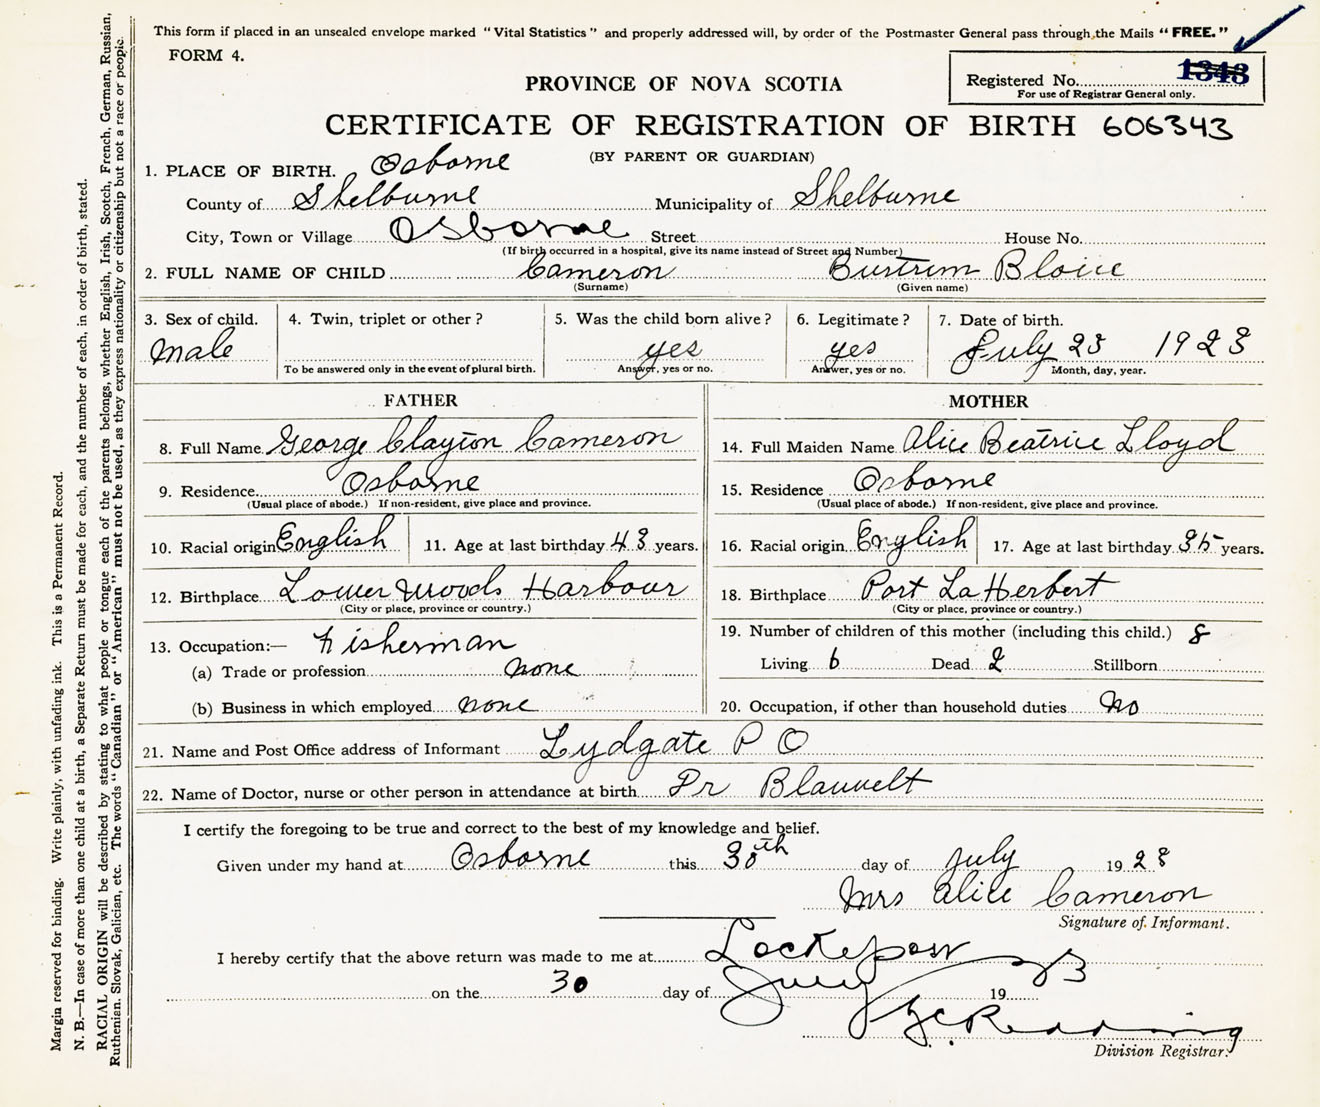 This form if placed in an unsealed envelope marked "Vital Statistics" and properly addressed will, by order of the Postmaster General pass through the Mails "FREE."
FORM 4.
Registered No. 1343
For use of Registrar General only.
PROVINCE OF NOVA SCOTIA
CERTIFICATE OF REGISTRATION OF BIRTH 606343
(BY PARENT OR GUARDIAN)
1. PLACE OF BIRTH. Osborne
County of Shelburne Municipality of Shelburne
City, Town or Village Osborne Street House No.
(If birth occurred in a hospital, give its name instead of Street and Number)
2. FULL NAME OF CHILD Cameron
(Surname) (Given name)
3. Sex of child. 4. Twin, triplet or other? 5. Was the child born alive? 6. Legitimate? 7. Date of birth.
Male yes yes July 23 1923
To be answered only in the event of plural birth. Answer, yes or no. Answer, yes or no. Month, day, year.
FATHER MOTHER
8. Full Name George Clayton Cameron 14. Full Maiden Name Alice Beatrice Lloyd
9. Residence Osborne 15. Residence Osborne
(Usual place of abode.) If non-resident, give place and province. (Usual place of abode.) If non-resident, give place and province.
10. Racial origin English 11. Age at last birthday 43 years. 16. Racial origin English 17. Age at last birthday 35 years.
12. Birthplace Lower Woods Harbour 18. Birthplace Port La Herbert
(City or place, province or country.) (City or place, province or country.)
13. Occupation:— Fisherman 19. Number of children of this mother (including this child.) 8
(a) Trade or profession none Living 6 Dead 2 Stillborn
(b) Business in which employed none 20. Occupation, if other than household duties No
21. Name and Post Office address of Informant Lydgate P O
22. Name of Doctor, nurse or other person in attendance at birth Dr Blauvelt
I certify the foregoing to be true and correct to the best of my knowledge and belief.
Given under my hand at Osborne this 30th day of July 1923
Mrs Alice Cameron
Signature of Informant.
I hereby certify that the above return was made to me at Lockeport
on the 30 day of July 19 23
Redding
Division Registrar.
Margin reserved for binding. Write plainly, with unfading ink. This is a Permanent Record.
N. B.—In case of more than one child at a birth, a Separate Return must be made for each, and the number of each, in order of birth, stated.
RACIAL ORIGIN will be described by stating to what people or tongue each of the parents belongs, whether English, Irish, Scotch, French, German, Russian,
Ruthenian, Slovak, Galician, etc. The words "Canadian" or "American" must not be used, as they express nationality or citizenship but not a race or people.